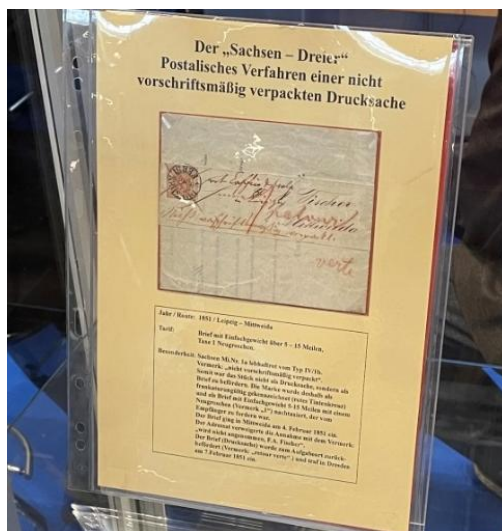 Der „Sachsen – Dreier“
Postalisches Verfahren einer nicht
vorschriftsmäßig verpackten Drucksache
Fischer
retour
verte
Jahr / Route: 1851 / Leipzig – Mittweida
Tarif: Brief mit Einfachgewicht über 5 – 15 Meilen,
Taxe 1 Neugroschen.
Besonderheit: Sachsen Mi.Nr. 1a lebhaftrot vom Typ IV/16.
Vermerk: „nicht vorschriftsmäßig verpackt“.
Somit war das Stück nicht als Drucksache, sondern als
Brief zu befördern. Die Marke wurde deshalb als
frankaturungültig gekennzeichnet (rotes Tintenkreuz)
und als Brief mit Einfachgewicht 5-15 Meilen mit einem
Neugroschen (Vermerk „1“) nachtaxiert, der vom
Empfänger zu fordern war.
Der Brief ging in Mittweida am 4. Februar 1851 ein.
Der Adressat verweigerte die Annahme mit dem Vermerk:
„wird nicht angenommen, F.A. Fischer“.
Der Brief (Drucksache) wurde zum Aufgabeort zurück-
befördert (Vermerk: „retour verte“ ) und traf in Dresden
am 7.Februar 1851 ein.